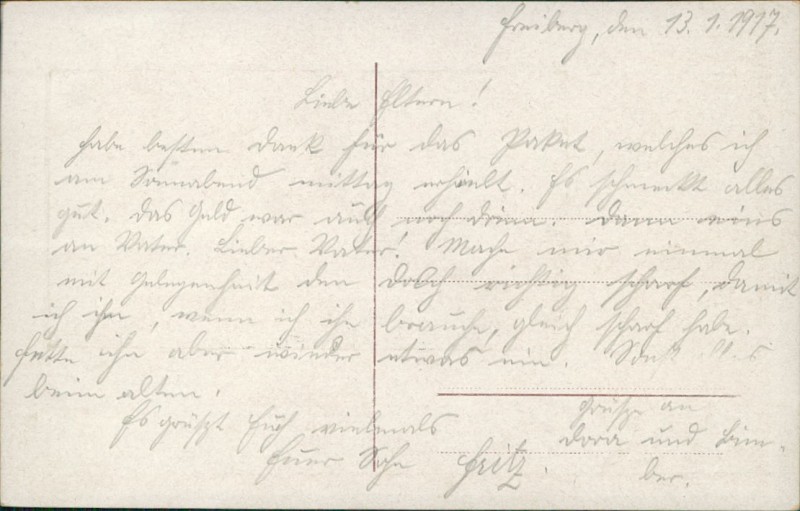 Freiberg, den 13.1.1917.
Liebe Eltern!
Habe besten Dank für das Paket, welches ich
am Sonnabend mittag erhielt. Es schmeckt alles
gut. Das Geld war auch noch drinn. Dann eins
an Vater. Lieber Vater! Mache mir einmal
mit Gelegenheit den Dolch richtig scharf, damit
ich ihn, wenn ich ihn brauche, gleich scharf habe.
Fette ihn aber wieder etwas ein. Sonst alles
beim alten.
Es grüszt Euch vielmals
Euer Sohn Fritz.
Grüsze an
Dora und